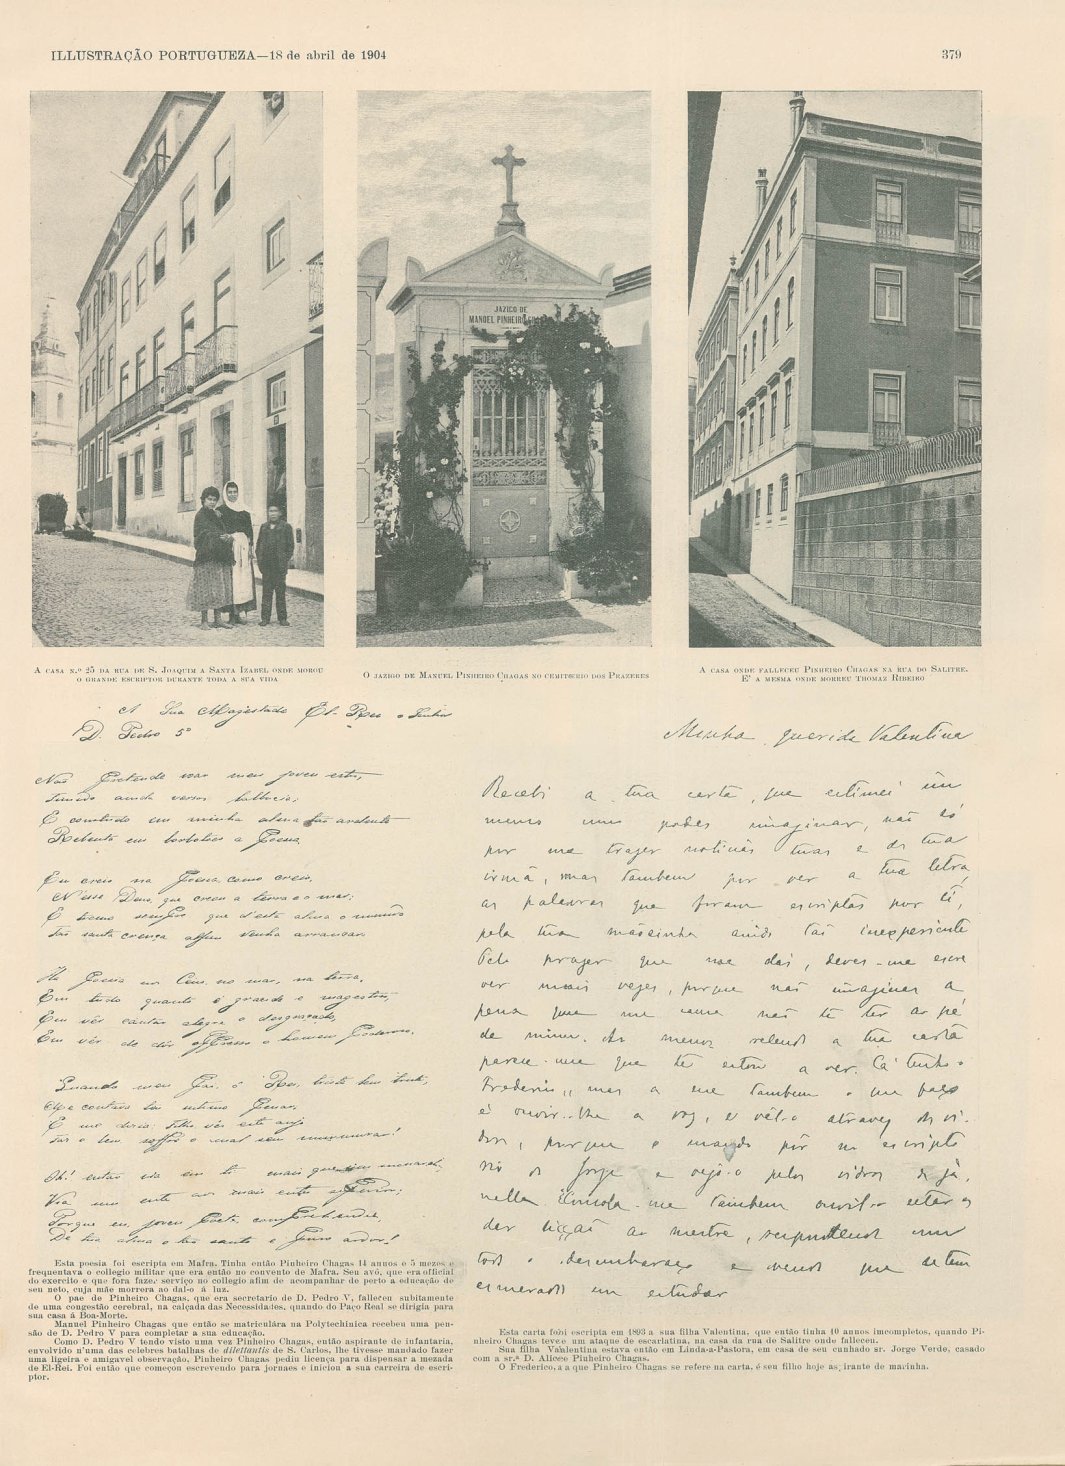 ILLUSTRAÇÃO PORTUGUEZA—18 de abril de 1904
379
JAZIGO DE
MANOEL PINHEIRO
A CASA N.º 25 DA RUA DE S. JOAQUIM A SANTA IZABEL ONDE MOROU
O GRANDE ESCRIPTOR DURANTE TODA A SUA VIDA
O JAZIGO DE MANUEL PINHEIRO CHAGAS NO CEMITERIO DOS PRAZERES
A CASA ONDE FALLECEU PINHEIRO CHAGAS NA RUA DO SALITRE.
E' A MESMA ONDE MORREU THOMAZ RIBEIRO
A Sua Magestade El-Rei o Senhor
D. Pedro 5º
Não Pretende voar meu jovem estro,
Timido ainda versos balbucia;
E comtudo em minha alma tão ardente
Rebenta em borbotões a Poesia.
Eu creio na Poesia, como creio,
N'esse Deus, que creou a terra e o mar;
E temo sempre que d'esta alma o mundo
Tão santa crença assim venha arrancar.
Ha Poesia no Ceu, no mar, na terra,
Em tudo quanto é grande e magestoso,
Em vêr cantar alegre o desgraçado,
Em vêr de dôr o homem
Quando meu Pai, ó Rei,
Me contava
E me dizia: Filho vês este anjo
Faz o bem, soffre o mal sem murmurar!
Oh! então via em ti mais que um monarcha,
Via um ente aos mais entes superior;
Porque eu, jovem Poeta, comprehendia,
De tua alma o tão santo e puro ardor!
Esta poesia foi escripta em Mafra. Tinha então Pinheiro Chagas 14 annos e 5 mezes e
frequentava o collegio militar que era então no convento de Mafra. Seu avô, que era official
do exercito e que fora fazer serviço no collegio afim de acompanhar de perto a educação de
seu neto, cuja mãe morrera ao dal-o á luz.
O pae de Pinheiro Chagas, que era secretario de D. Pedro V, falleceu subitamente
de uma congestão cerebral, na calçada das Necessidades, quando do Paço Real se dirigia para
sua casa á Boa-Morte.
Manuel Pinheiro Chagas que então se matriculára na Polytechinica recebeu uma pen-
são de D. Pedro V para completar a sua educação.
Como D. Pedro V tendo visto uma vez Pinheiro Chagas, então aspirante de infantaria,
envolvido n'uma das celebres batalhas de dilettantis de S. Carlos, lhe tivesse mandado fazer
uma ligeira e amigavel observação, Pinheiro Chagas pediu licença para dispensar a mezada
de El-Rei. Foi então que começou escrevendo para jornaes e iniciou a sua carreira de escri-
ptor.
Minha querida Valentina
Recebi a tua carta, que estimei como
menos podes imaginar, não só
por me trazer noticias tuas e de tua
irmã, mas tambem por ver a tua letra,
as palavras que foram escriptas por ti,
pela tua mãosinha ainda tão inexperiente
Pelo prazer que me dás, deves-me escre
ver mais vezes, porque não imaginas a
pena que me causa não te ter ao pé
de mim. Ao menos relendo a tua carta
parece-me que te estou a ver. Cá tenho o
Frederico, mas a esse tambem o que faço
é ouvir-lhe a voz, e vêl-o atravez dos vi-
dros, porque o mando pôr no escripto
rio do Jorge e vejo-o pelos vidros da ja-
nella. Consola-me tambem ouvil-o estar a
dar lição ao mestre, respondendo com
todo o desembaraço e vendo que se tem
esmerado em estudar
Esta carta foi escripta em 1893 a sua filha Valentina, que então tinha 10 annos imcompletos, quando Pi-
nheiro Chagas teve um ataque de escarlatina, na casa da rua de Salitre onde falleceu.
Sua filha Valentina estava então em Linda-a-Pastora, em casa de seu cunhado sr. Jorge Verde, casado
com a sr.ª D. Alice Pinheiro Chagas.
O Frederico, a que Pinheiro Chagas se refere na carta, é seu filho hoje aspirante de marinha.